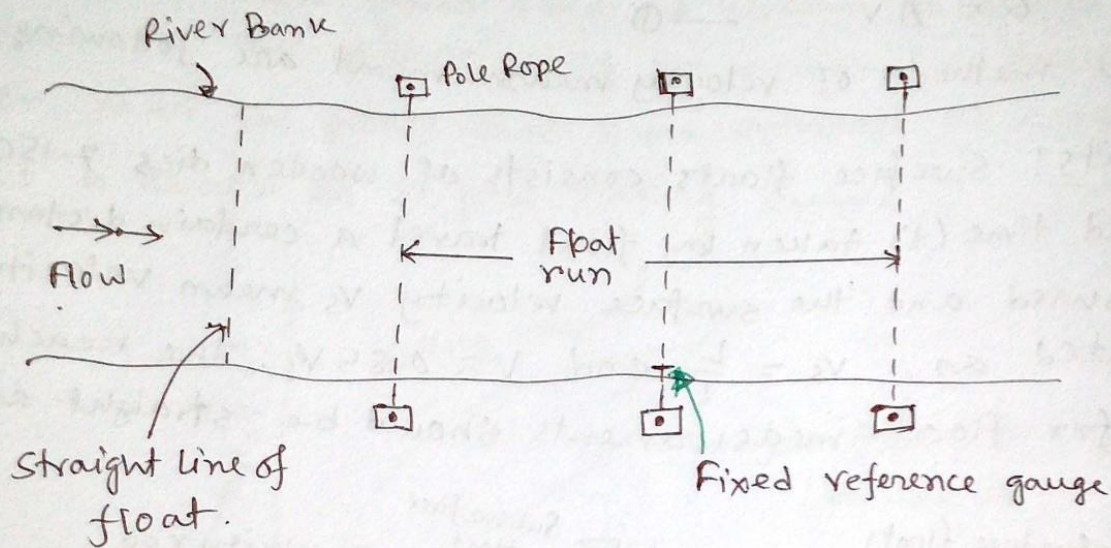 River Bank
Pole Rope
Float
run
Flow
Straight line of
float.
Fixed reference gauge